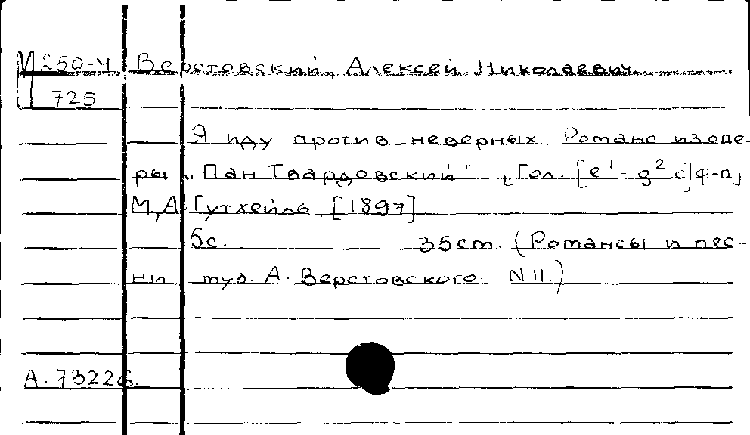 М 250-4 Верстовский Алексей Николаевич
725
Я иду против неверных. Романс из опе-
ры "Пан Твардовский" [Гол. [e¹-g² с] ф-п]
М, А. Гутхейль [1897]
5с. 35см. (Романсы и пес-
ни муз. А. Верстовского. N 11.)
А. 73226.